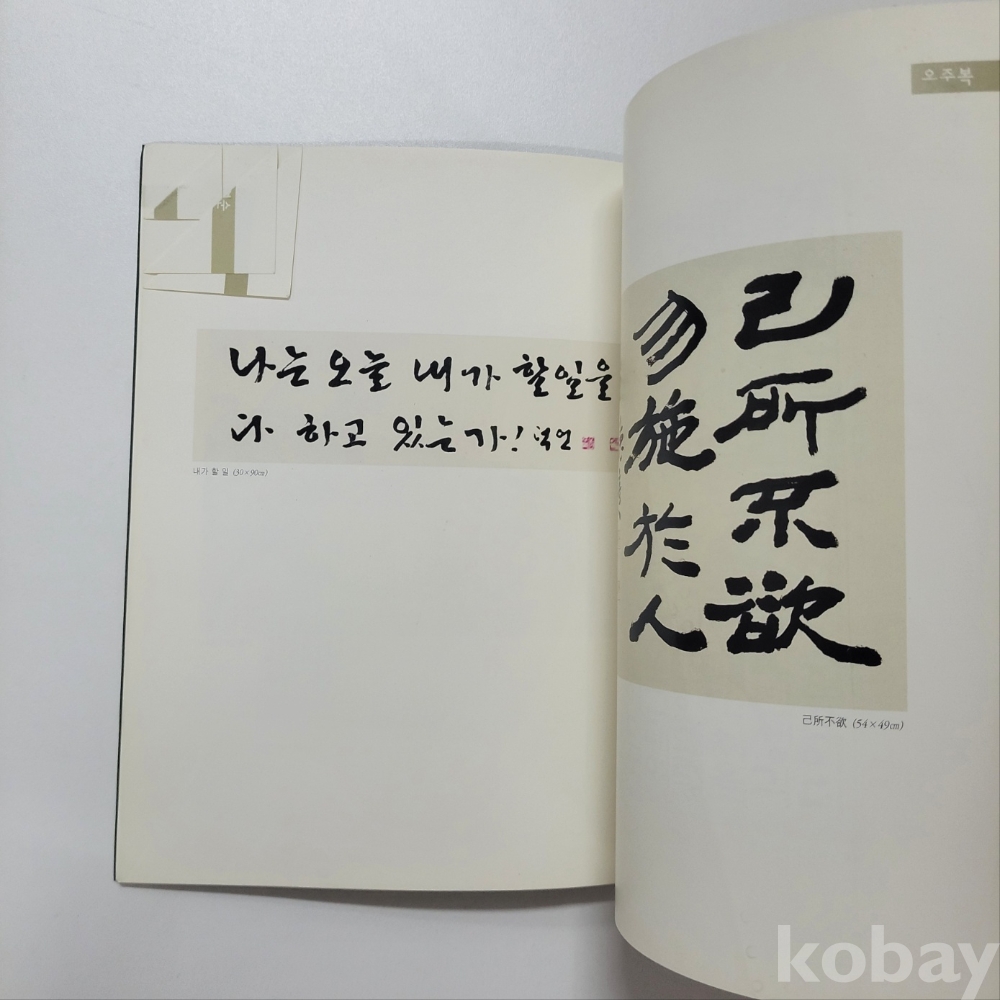 나는 오늘 내가 할일을
다 하고 있는가! 덕언
내가 할 일 (30×90㎝)
오주복
己所不欲
勿施於人
己所不欲 (54×49㎝)
kobay